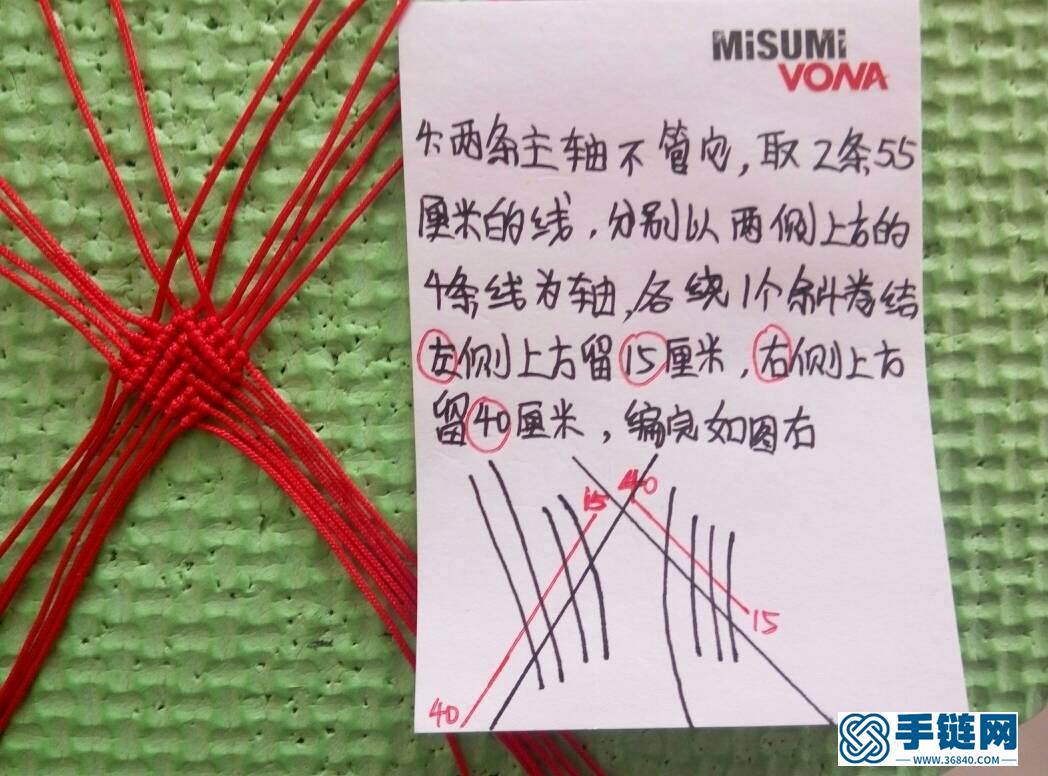 MiSUMi
VONA
4:两条主轴不管它,取2条55
厘米的线,分别以两侧上方的
4条线为轴,各绕1个斜卷结
左侧上方留15厘米,右侧上方
留40厘米,编完如图右
15 40
15
40
手链网
WWW.36840.COM